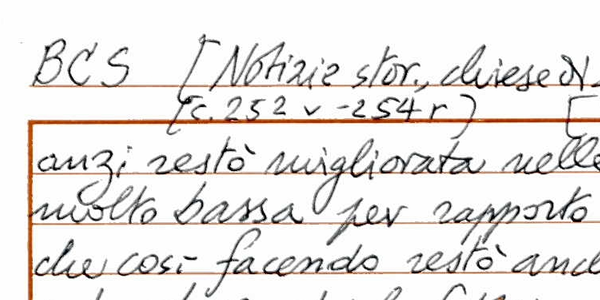 BCS [Notizie stor., chiese N.
[c. 252 v - 254 r] [
anzi restò migliorata nelle
molto bassa per rapporto
che così facendo restò and